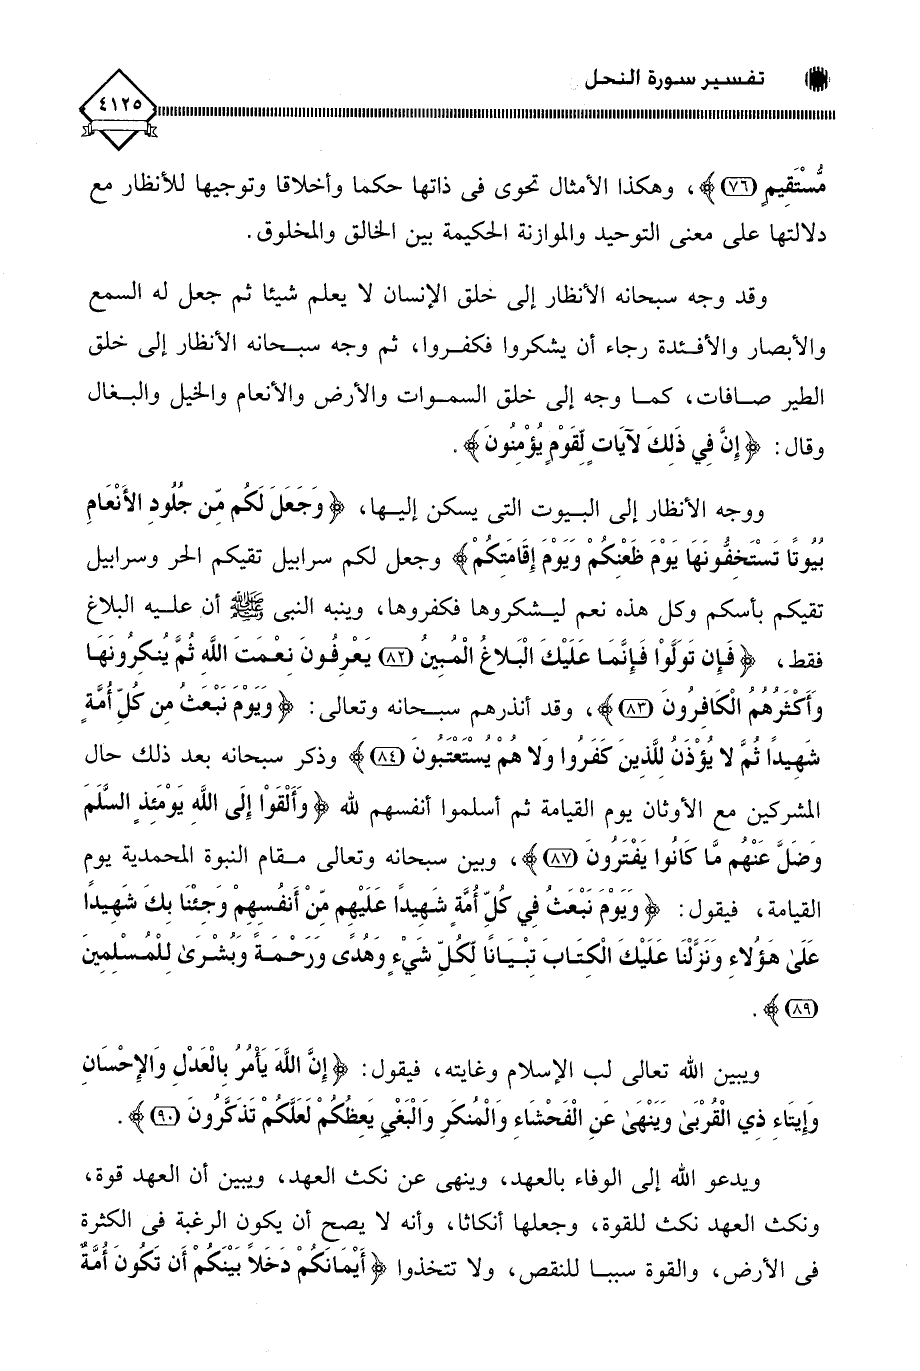 تفسير سورة النحل
٤١٢٥
مُّسْتَقِيمٍ (٧٦)﴾، وهكذا الأمثال تحوى فى ذاتها حكما وأخلاقا وتوجيها للأنظار مع
دلالتها على معنى التوحيد والموازنة الحكيمة بين الخالق والمخلوق.
وقد وجه سبحانه الأنظار إلى خلق الإنسان لا يعلم شيئا ثم جعل له السمع
والأبصار والأفـئدة رجاء أن يشكروا فكفـروا، ثم وجه سبـحانه الأنظار إلى خلق
الطير صـافات، كمـا وجه إلى خلق السمـوات والأرض والأنعام والخيل والبـغال
وقال: ﴿إِنَّ فِي ذَلِكَ لآيَاتٍ لِّقَوْمٍ يُؤْمِنُونَ﴾.
ووجه الأنظار إلى البـيوت التى يسكن إليـها، ﴿وَجَعَلَ لَكُم مِّن جُلُودِ الأَنْعَامِ
بُيُوتًا تَسْتَخِفُّونَهَا يَوْمَ ظَعْنِكُمْ وَيَوْمَ إِقَامَتِكُمْ﴾ وجعل لكم سرابيل تقيكم الحر وسرابيل
تقيكم بأسكم وكل هذه نعم ليـشكروها فكفروها، وينبه النبى ﷺ أن علـيه البلاغ
فقط، ﴿فَإِن تَوَلَّوْا فَإِنَّمَا عَلَيْكَ الْبَلاغُ الْمُبِينُ (٨٢) يَعْرِفُونَ نِعْمَتَ اللَّهِ ثُمَّ يُنكِرُونَهَا
وَأَكْثَرُهُمُ الْكَافِرُونَ (٨٣)﴾، وقد أنذرهم سبـحانه وتعالى: ﴿وَيَوْمَ نَبْعَثُ مِن كُلِّ أُمَّةٍ
شَهِيدًا ثُمَّ لا يُؤْذَنُ لِلَّذِينَ كَفَرُوا وَلا هُمْ يُسْتَعْتَبُونَ (٨٤)﴾ وذكر سبحانه بعد ذلك حال
المشركين مع الأوثان يوم القيامة ثم أسلموا أنفسهم لله ﴿وَأَلْقَوْا إِلَى اللَّهِ يَوْمَئِذٍ السَّلَمَ
وَضَلَّ عَنْهُم مَّا كَانُوا يَفْتَرُونَ (٨٧)﴾، وبين سبحانه وتعالى مـقام النبوة المحمدية يوم
القيامة، فيقول: ﴿وَيَوْمَ نَبْعَثُ فِي كُلِّ أُمَّةٍ شَهِيدًا عَلَيْهِم مِّنْ أَنفُسِهِمْ وَجِئْنَا بِكَ شَهِيدًا
عَلَىٰ هَؤُلاءِ وَنَزَّلْنَا عَلَيْكَ الْكِتَابَ تِبْيَانًا لِّكُلِّ شَيْءٍ وَهُدًى وَرَحْمَةً وَبُشْرَىٰ لِلْمُسْلِمِينَ
(٨٩)﴾.
ويبين الله تعالى لب الإسلام وغايته، فيقول: ﴿إِنَّ اللَّهَ يَأْمُرُ بِالْعَدْلِ وَالإِحْسَانِ
وَإِيتَاءِ ذِي الْقُرْبَىٰ وَيَنْهَىٰ عَنِ الْفَحْشَاءِ وَالْمُنكَرِ وَالْبَغْيِ يَعِظُكُمْ لَعَلَّكُمْ تَذَكَّرُونَ (٩٠)﴾.
ويدعو الله إلى الوفاء بالعهد، وينهى عن نكث العهد، ويبين أن العهد قوة،
ونكث العهد نكث للقوة، وجعلها أنكاثا، وأنه لا يصح أن يكون الرغبة فى الكثرة
فى الأرض، والقوة سببـا للنقص، ولا تتخذوا ﴿أَيْمَانَكُمْ دَخَلاً بَيْنَكُمْ أَن تَكُونَ أُمَّةٌ